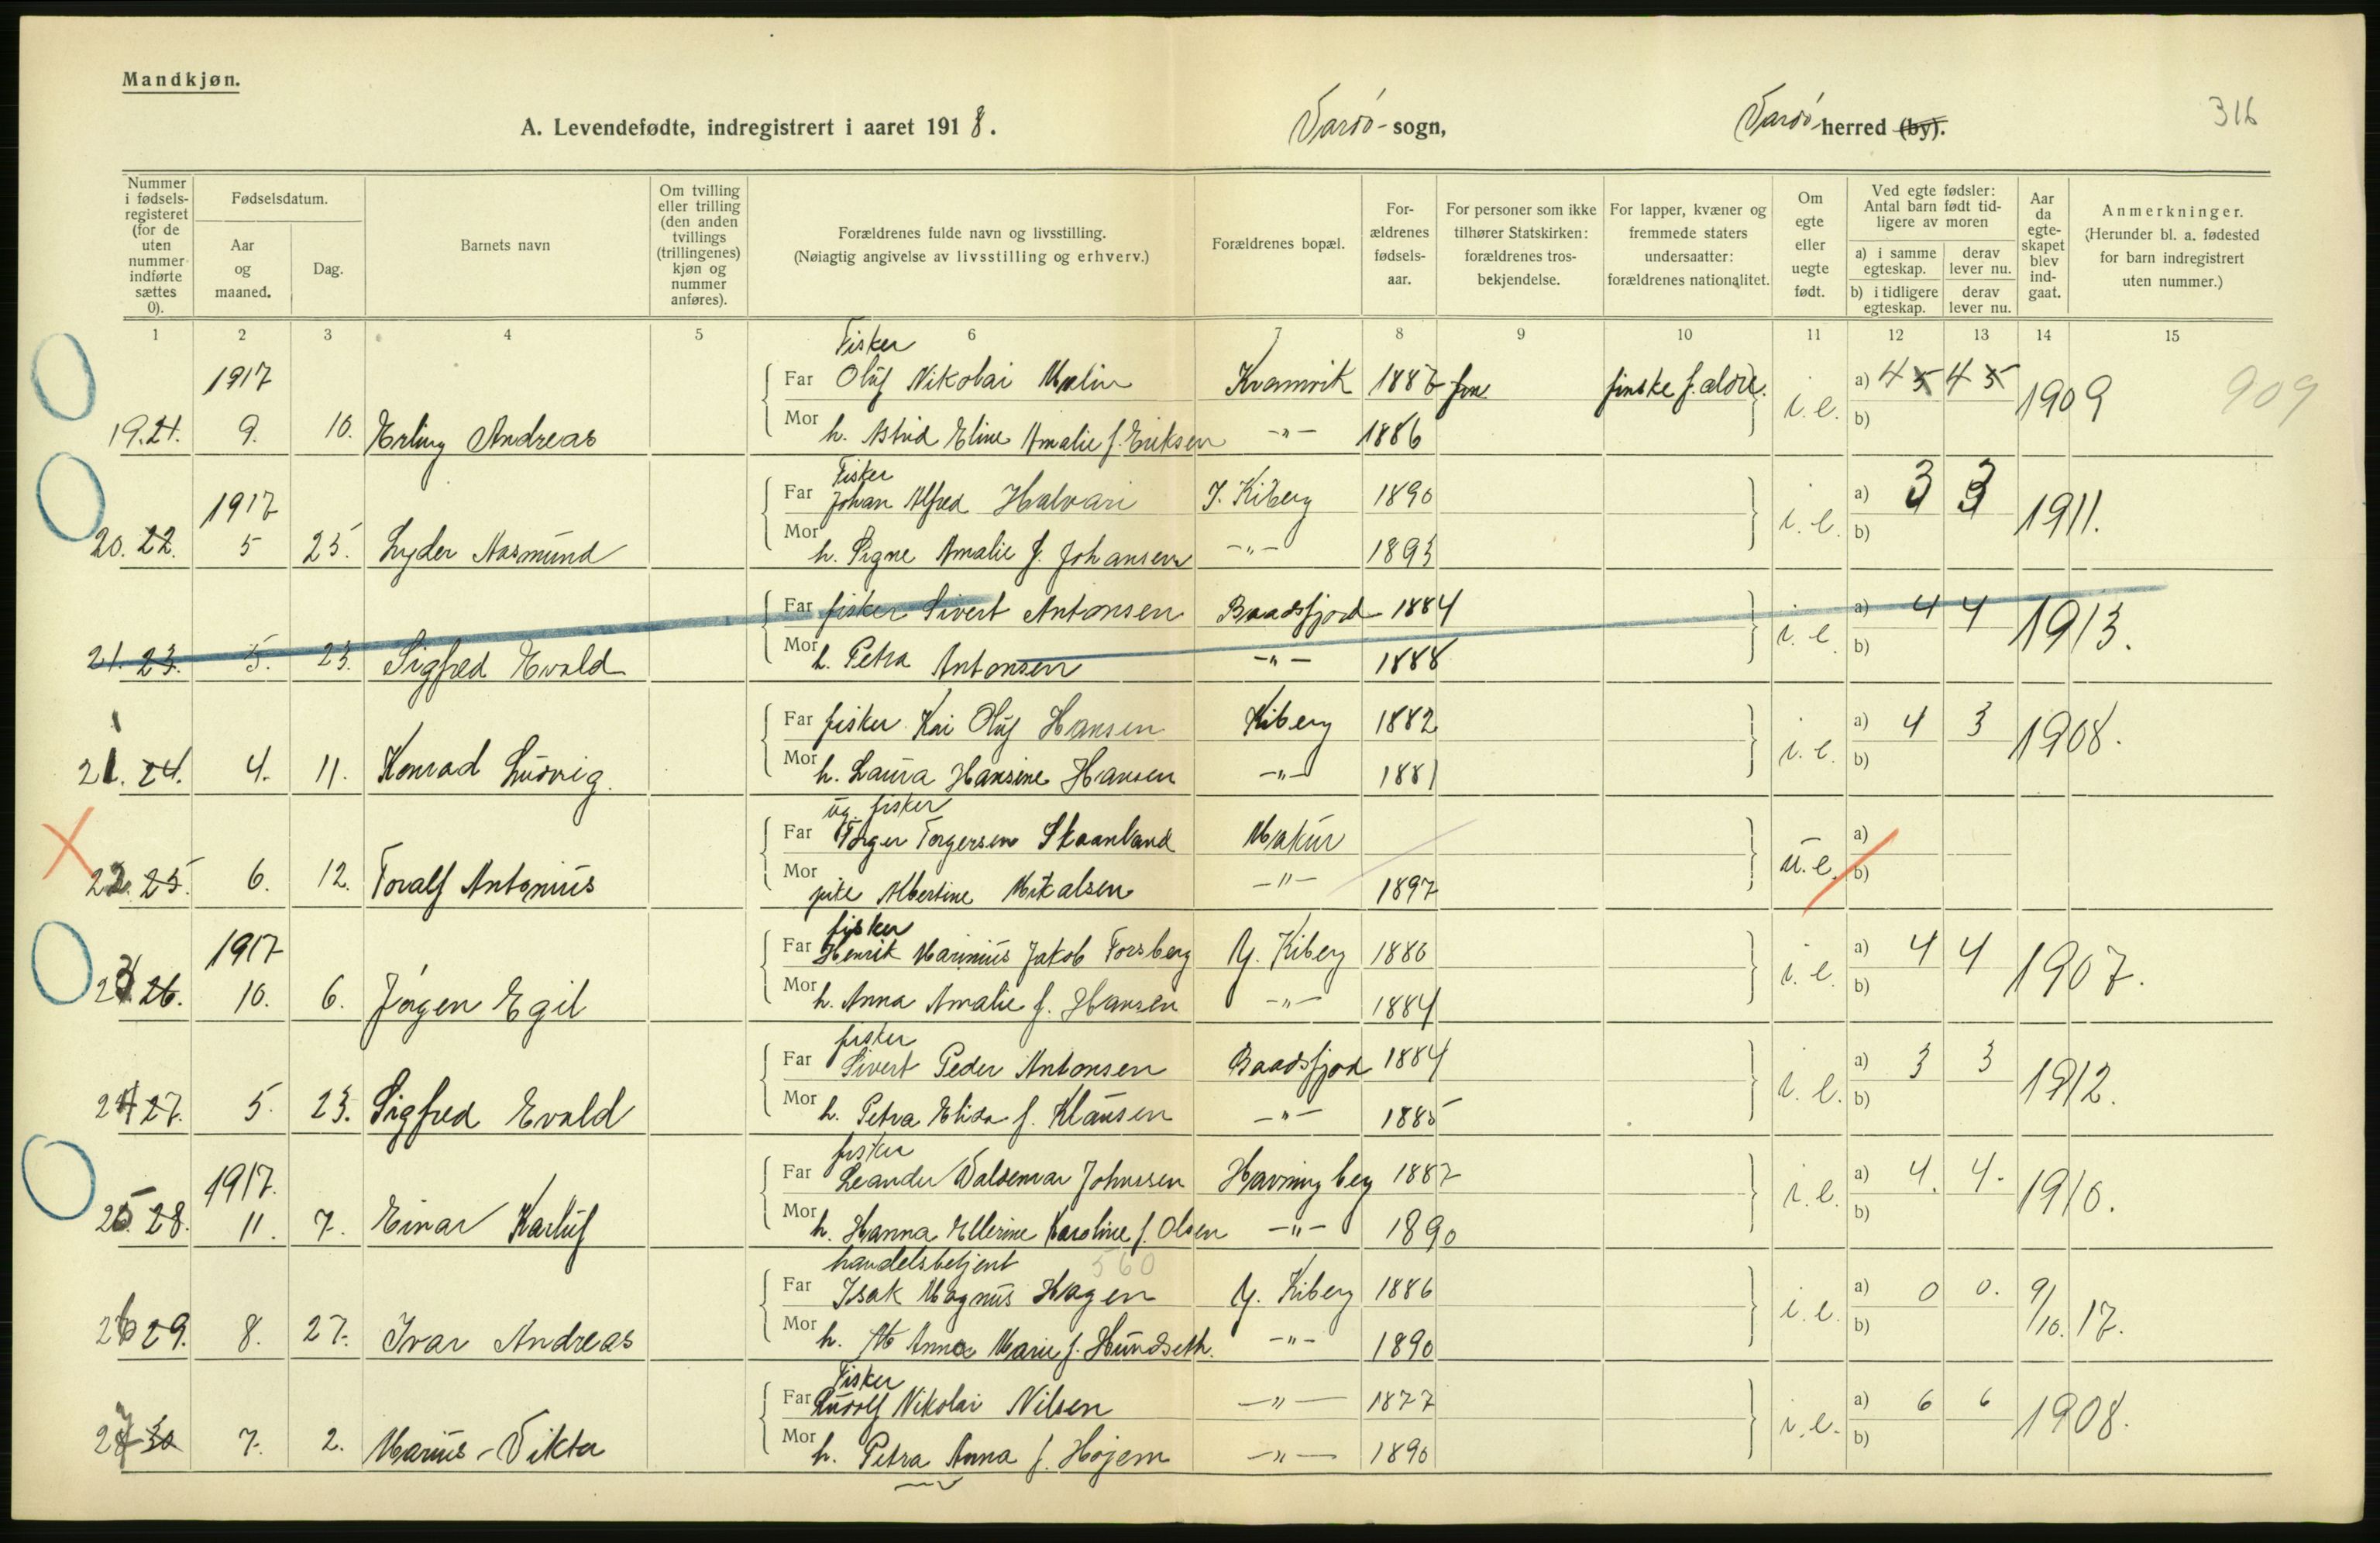 Mandkjøn.
316
A. Levendefødte, indregistrert i aaret 1918. Vardø- sogn, Vardø herred (by).
Nummer i fødselsregisteret (for de uten nummer indførte sættes 0).
Fødselsdatum.
Aar og maaned.
Dag.
Barnets navn
Om tvilling eller trilling (den anden tvillings (trillingenes) kjøn og nummer anføres).
Forældrenes fulde navn og livsstilling.
(Nøiagtig angivelse av livsstilling og erhverv.)
Forældrenes bopæl.
Forældrenes fødselsaar.
For personer som ikke tilhører Statskirken: forældrenes trosbekjendelse.
For lapper, kvæner og fremmede staters undersaatter: forældrenes nationalitet.
Om egte eller uegte født.
Ved egte fødsler: Antal barn født tidligere av moren
a) i samme egteskap.
derav lever nu.
b) i tidligere egteskap.
derav lever nu.
Aar da egteskapet blev indgaat.
Anmerkninger.
(Herunder bl. a. fødested for barn indregistrert uten nummer.)
1 2 3 4 5 6 7 8 9 10 11 12 13 14 15
Fisker
1917 Far Oluf Nikolai Malin Kramvik 1887 finske f.aldre. a) 4 5 4 5 1909 909
19. 21. 9. 10. Erling Andreas Mor h. Astrid Eline Amalie f. Eriksen -"- 1886 i.e. b)
Fisker
1917 Far Johan Alfred Halvari I. Kiberg 1890 a) 3 3 1911.
20. 22. 5 25. Lyder Aasmund Mor h. Signe Amalie f. Johansen -"- 1893 i.e. b)
Far fisker Sivert Antonsen Baadsfjord 1884 a) 4 4 1913.
21. 23. 5. 23. Sigfred Evald Mor h. Petra Antonsen -"- 1888 i.e. b)
Far fisker Kai Oluf Hansen Kiberg 1882 a) 4 3 1908.
21. 24. 4. 11. Konrad Ludvig. Mor h. Laura Hansine Hansen -"- 1881 i.e. b)
ug. fisker
Far Torger Torgersen Skaanland Makur a)
22. 25. 6. 12. Toralf Antonius Mor pike Albertine Mikalsen -"- 1897 u.e. b)
fisker
1917 Far Henrik Marinius Jakob Forsberg Y. Kiberg 1880 a) 4 4 1907.
23. 26. 10. 6. Jørgen Egil Mor h. Anna Amalie f. Hansen -"- 1884 i.e. b)
fisker
Far Sivert Peder Antonsen Baadsfjord 1884 a) 3 3 1912.
24 27. 5. 23. Sigfred Evald Mor h. Petra Elida f. Klausen -"- 1885 i.e. b)
fisker
1917. Far Leander Valdemar Johnssen Havningberg 1887 a) 4. 4. 1910.
25. 28. 11. 7. Einar Karluf Mor h. Hanna Ellerine Karoline f. Olsen -"- 1890 i.e. b)
handelsbetjent 560
Far Isak Magnus Hagen Y. Kiberg 1886 a) 0 0. 9/10. 17.
26 29. 8. 27. Ivar Andreas Mor h. Anna Marie f. Hundseth. -"- 1890 i.e. b)
Fisker
Far Ludolf Nikolai Nilsen -"- 1877 a) 6 6 1908.
27 30 7. 2. Marius-Vikta Mor h. Petra Anna f. Højem -"- 1890 i.e. b)